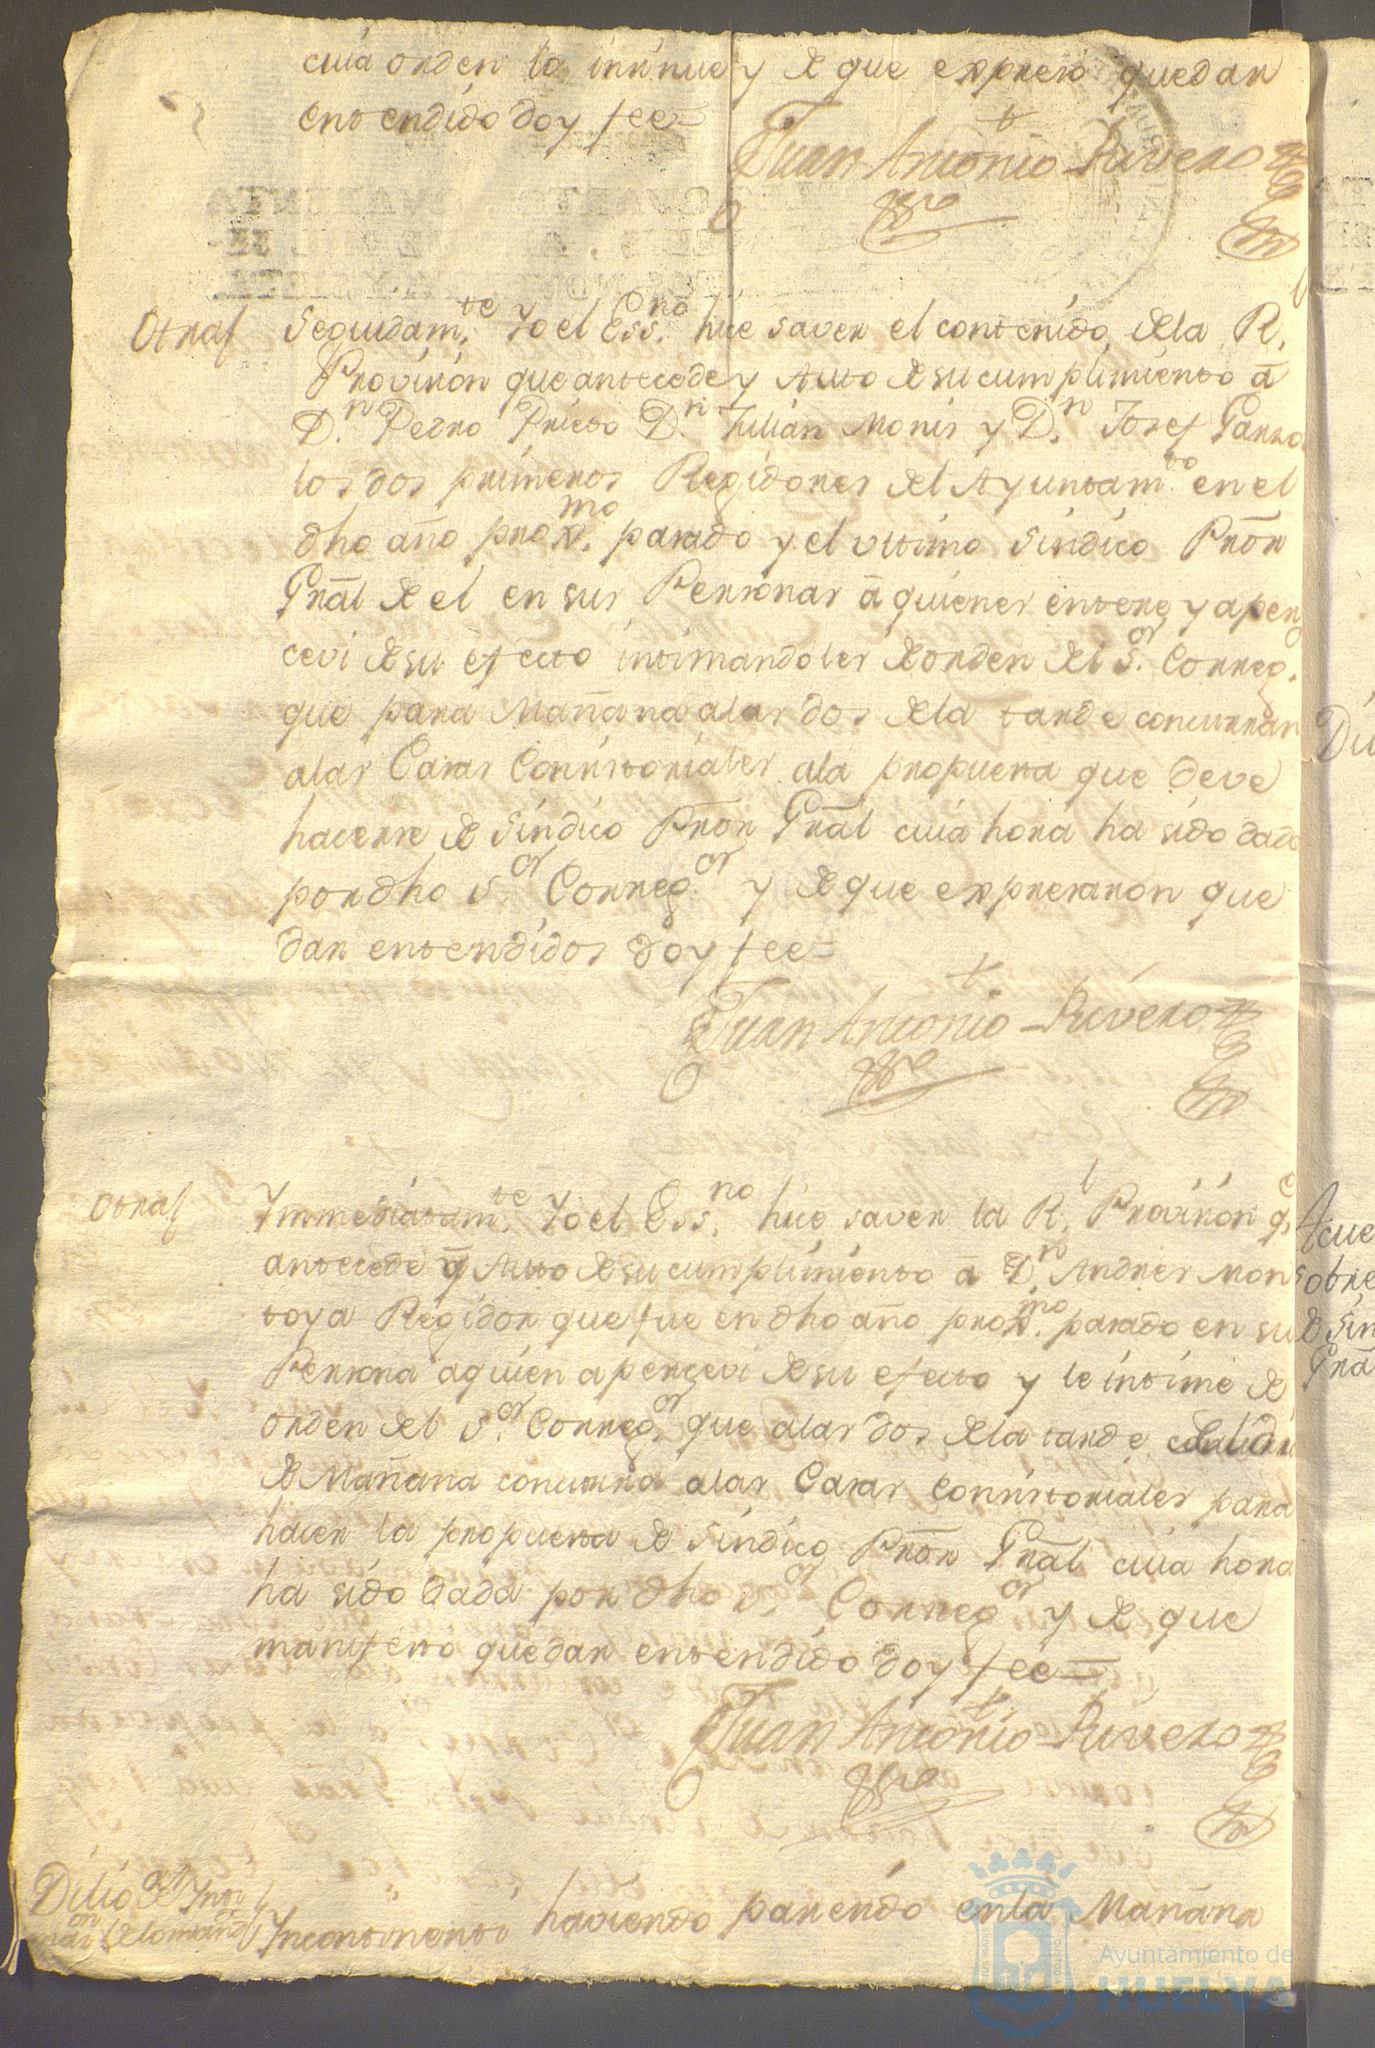 cuia orden lo insinue y de que expreso quedar
entendido doy fee=
Juan Antonio Rivero
Otras
Seguidam.te Yo el Ess.no hice saver el contenido de la R.l
Provision que antecede y Auto de su cumplimiento á
D.n Pedro Prieto D.n Julian Monis y D.n Josef Garzo
los dos primeros Regidores del Ayuntam.to en el
dho año prox.mo pasado y el ultimo Sindico Prõr
Grãl de el en sus Personas á quienes entere y aper
cevi de su efecto intimandoles de orden del S.or Correg.or
que para Mañana a las dos de la tarde concurran
a las Casas Consistoriales a la propuesta que deve
hacerse de Sindico Prõr Grãl cuia hora ha sido dada
por dho S.or Correg.or y de que expresaron que
dar entendidos doy fee=
Juan Antonio Rivero
Otras
Ymmediatam.te Yo el Ess.no hice saver la R.l Provision q.e
antecede y Auto de su cumplimiento á D.n Andres Mon
toya Regidor que fue en dho año prox.mo pasado en su
Persona a quien apercevi de su efecto y le intime de
orden del S.or Correg.or que a las dos de la tarde
de Mañana concurra a las Casas Consistoriales para
hacer la propuesta de Sindico Prõr Grãl cuia hora
ha sido dada por dho S.or Correg.or y de que
manifesto quedar entendido doy fee=
Juan Antonio Rivero
Incontinenti haviendo parecido en la Mañana
Acue
sobre
de Sin
Grãl
Ayuntamiento de
HUELVA